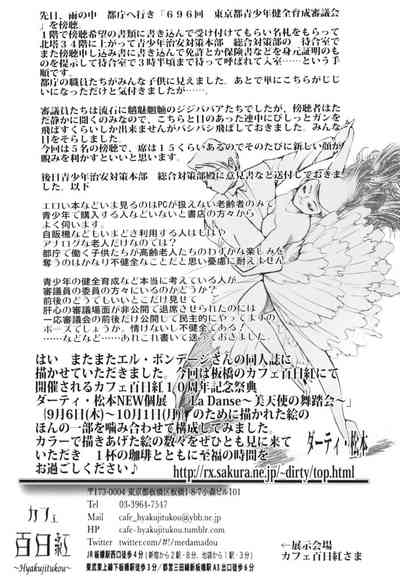 先日、雨の中　都庁へ行き「６９６回　東京都青少年健全育成審議会」を傍聴。
１階で傍聴受け付けの書類に書き込んで受け付けてもらい名札をもらって
北塔３４階に上がって青少年治安対策本部　総合対策部の　待合室で
また傍聴申し込み書に書き込んで免許とか保険書などを身元証明のも
のを提示して待合室で３時半頃まで待って呼ばれて入室……という手
順です。
都庁の職員たちがみんな子供に見えました。あとで単にこちらがじじ
いになっただけと気付きましたが……。
審議員たちは流石に魑魅魍魎のジジババアたちでしたが、傍聴者はた
だ静かに聞くのみなので、こちらと目のあった連中にびしっとガンを
飛ばすくらいしか出来ませんがバシバシ飛ばしておきました。みんな
目をそらしました。
今回は５名の傍聴で、席は１５くらいあるのでそのたびに新しい顔が
睨みを利かすといいと思います。
後日青少年治安対策本部　総合対策部殿に意見書など送付しておきま
した。以下
エロい本などいま見るのはPCが扱えない老齢者のみで
青少年で購入する人などいないと書店の方々から
よく伺います。
自販機などもいまどき利用する人はもはや
アナログな老人だけなのでは？
都庁で働く子供たちが高齢老人たちのわずかな楽しみを
奪うのはかなり不健全なことだと思い憂慮に耐えません。
青少年の健全育成など本当に考えている人が
審議員の委員の方々にいるのかどうか？
前後のどうでもいいとこだけ見せて
肝心の審議場面が非公開で退席させられたのには
一応審議会の前後だけ公開して民主的にやってますの
ポーズでしょうか。情けないし不健全である！
……などなど……あれこれ書いて送っておきました。
はい　またまたエル・ボンデージさんの同人誌に
描かせていただきました。今回は板橋のカフェ百日紅にて
開催されるカフェ百日紅１０周年記念祭典
ダーティ・松本NEW個展　「La Danse～美天使の舞踏会～」
（9月6日(木)～10月1日(月)）のために描かれた絵の
ほんの一部を噛み合わせて構成してみました。
カラーで描きあげた絵の数々をぜひとも見に来て
いただき　１杯の珈琲とともに至福の時間を
お過ごしください♪
ダーティ・松本
http://rx.sakura.ne.jp/~dirty/top.html
カフェ
百日紅
~Hyakujitukou~
〒173-0004 東京都板橋区板橋1-8-7小森ビル101
Tel　03-3964-7547
Mail　cafe_hyakujitukou@ybb.ne.jp
HP　cafe-hyakujitukou.tumblr.com
Twitter　twitter.com/#!/medamadou
JR板橋駅西口徒歩４分（新宿から２駅・８分、池袋から１駅・３分）
東武東上線下板橋駅徒歩３分／都営三田線新板橋駅A3出口徒歩６分
←展示会場
カフェ百日紅さま